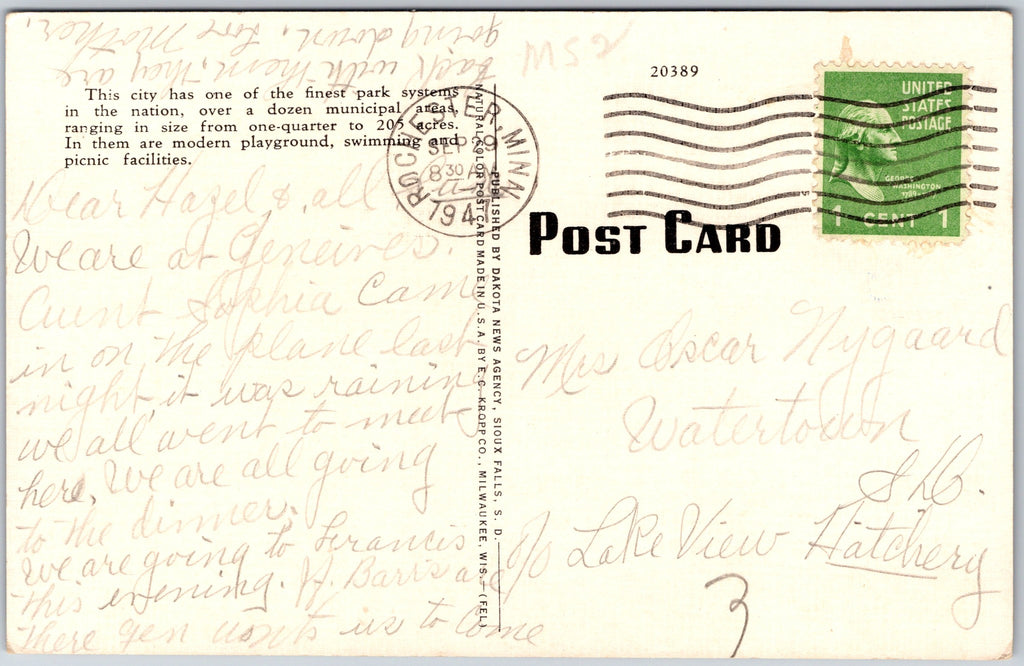 This city has one of the finest park systems
in the nation, over a dozen municipal areas,
ranging in size from one-quarter to 205 acres.
In them are modern playground, swimming and
picnic facilities.
Dear Hazel & all
We are at Geneives.
Aunt Sophia Came
in on the plane last
night it was raining
we all went to meet
here, We are all going
to the dinner.
We are going to Francis
this evening. H. Barrs are
there Gen wants us to come
back with them, they are
going down, Love Mother.
NATURAL COLOR POST CARD MADE IN U.S.A. BY E.C. KROPP CO., MILWAUKEE, WIS.—(F.E.L)
PUBLISHED BY DAKOTA NEWS AGENCY, SIOUX FALLS, S. D.
MS2
20389
ROCHESTER, MINN.
SEP 29
8 30 AM
194
UNITED
STATES
POSTAGE
GEORGE
WASHINGTON
1789-
1 CENT 1
POST CARD
Mrs Oscar Nygaard
Watertown
S.D.
c/o Lake View Hatchery
3